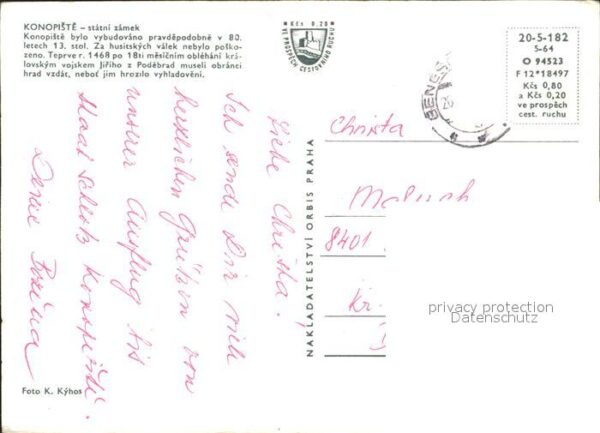 KONOPIŠTĚ – státní zámek
Konopiště bylo vybudováno pravděpodobně v 80.
letech 13. stol. Za husitských válek nebylo poško-
zeno. Teprve r. 1468 po 18ti měsíčním obléhání krá-
lovským vojskem Jiřího z Poděbrad museli obránci
hrad vzdát, neboť jim hrozilo vyhladovění.
Kčs 0.20
VE PROSPĚCH CESTOVNÍHO RUCHU
20-5-182
5-64
O 94523
F 12*18497
Kčs 0,80
a Kčs 0,20
ve prospěch
cest. ruchu
BENEŠ
Liebe Christa!
Ich sende Dir viele
herzlichen Grüßen von
unserer Ausflug bis
Staat Schloß Konopiště.
Deine
NAKLADATELSTVÍ ORBIS PRAHA
Christa
8401
Kr.
privacy protection
Datenschutz
Foto K. Kýhos